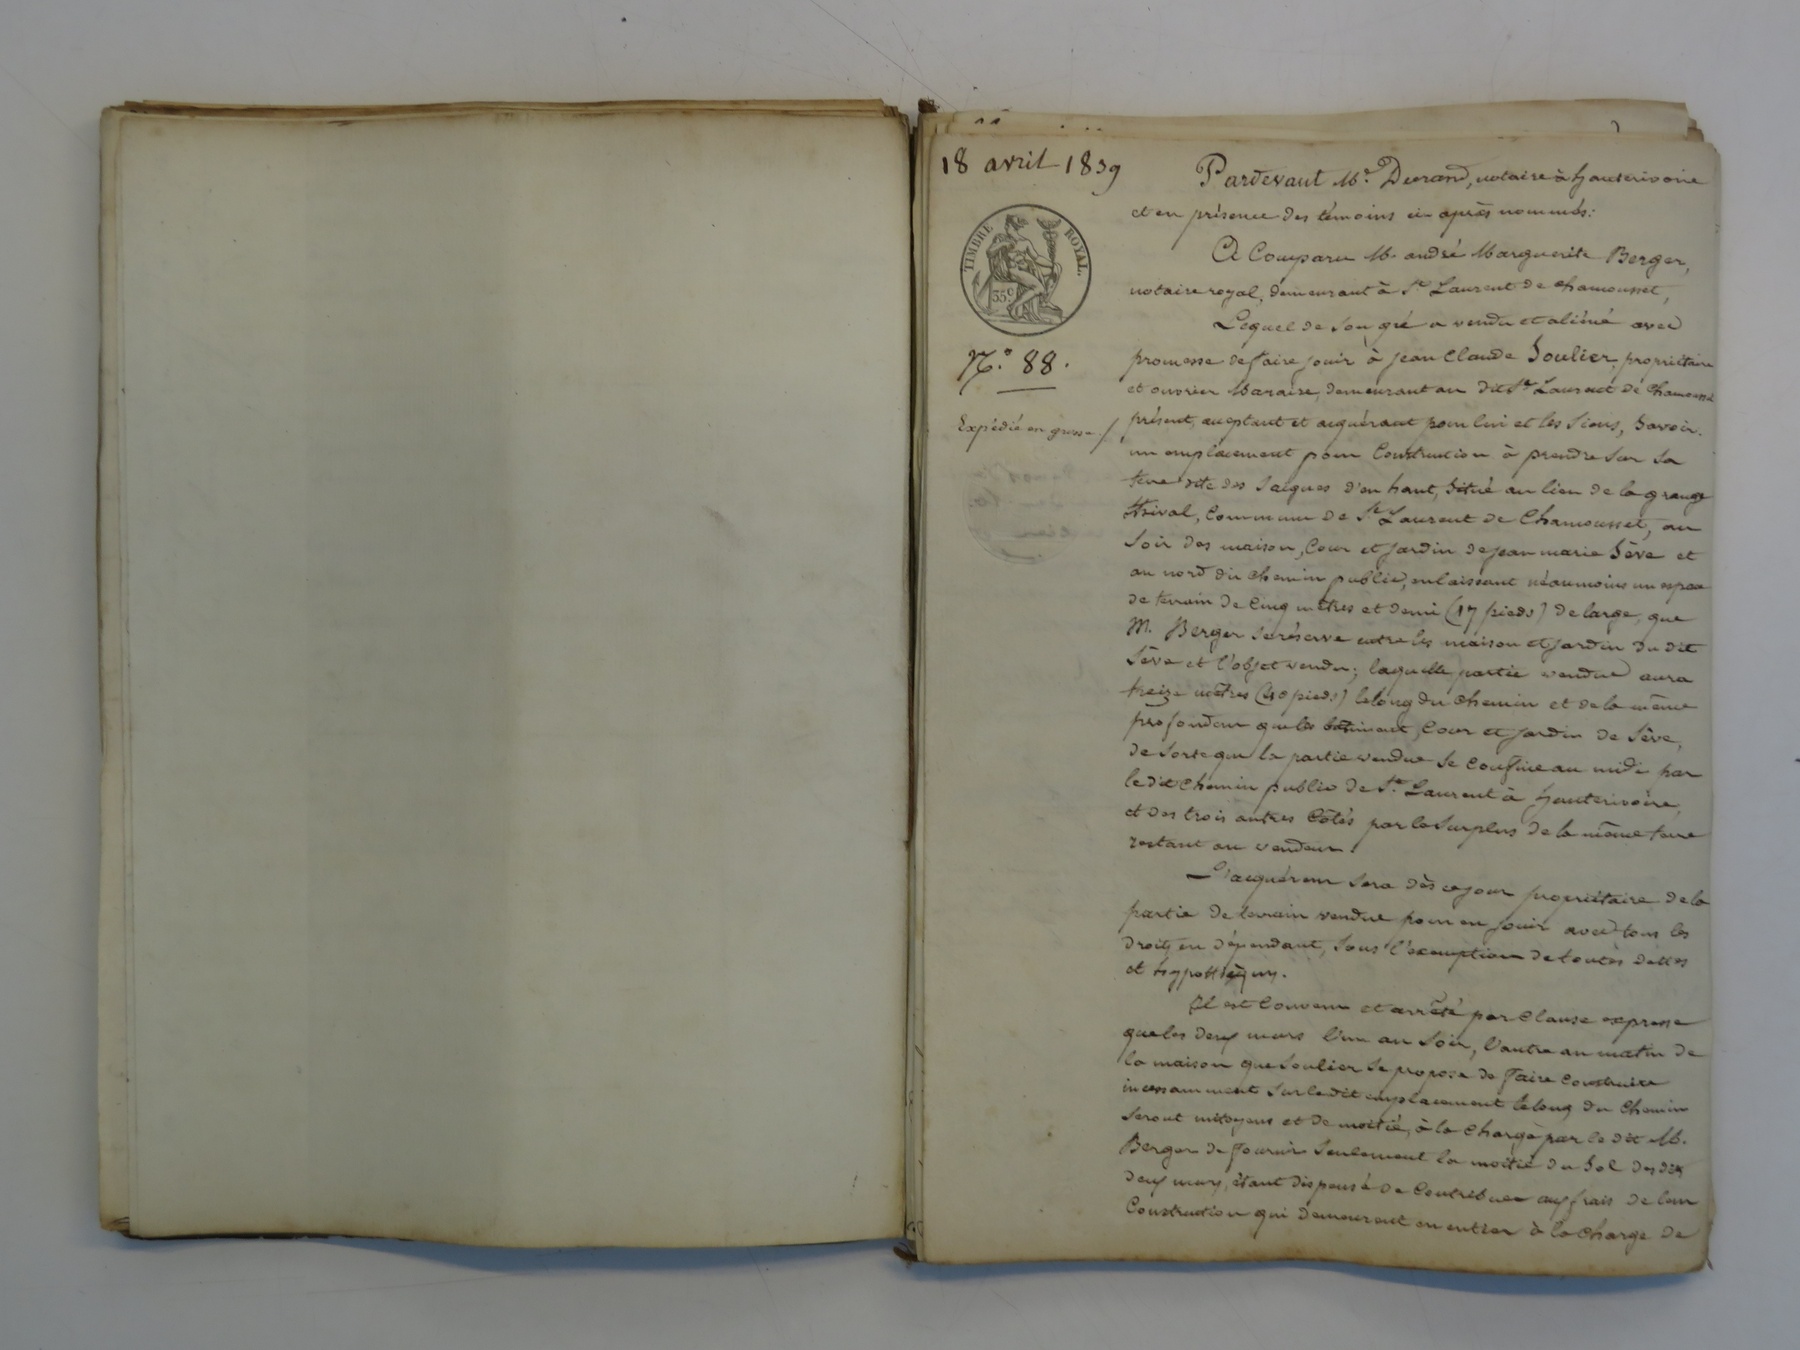 18 avril 1839
TIMBRE ROYAL.
35c
N.° 88.
Expédié en grosse /
Pardevant Me. Durand, notaire à hauterivoire
et en présence des témoins ci après nommés:
A Comparu M. andré Marguerite Berger,
notaire royal, demeurant à St. Laurent de chamousset,
Lequel de son gré a vendu et aliéné avec
promesse de faire jouir à jean Claude Soulier, propriétaire
et ouvrier demeurant au dit St. Laurent de Chamousset
présent, acceptant et acquérant pour lui et les siens, Savoir.
un emplacement pour Construction à prendre sur sa
terre dite des d'en haut, Situé au lieu de la grange
Commune de St. Laurent de Chamousset, au
Soir des maison, Cour et jardin de jean marie Sève et
au nord du chemin public, en laissant néanmoins un espace
de terrain de Cinq mètres et demi (17 pieds) de large, que
M. Berger se réserve entre les maison et jardin du dit
Sève et l'objet vendu; laquelle partie vendue aura
treize mètres (40 pieds) le long du chemin et de la même
profondeur que les batiment, Cour et jardin de Sève,
de sorte que la partie vendue se Confine au midi par
le dit chemin public de St. Laurent à hauterivoire,
et des trois autres Côtés par le Surplus de la même terre
restant au vendeur.
L'acquéreur sera dès ce jour propriétaire de la
partie de terrain vendue pour en jouir avec tous les
droits en dépendant, Sous l'exemption de toutes dettes
et hypothèques.
Il est Convenu et arrêté par Clause expresse
que les deux murs l'un au Soir, l'autre au matin de
la maison que Soulier se propose de faire Construire
incessamment sur le dit emplacement le long du Chemin
seront mitoyens et de moitié, à la Charge par le dit M.
Berger de fournir Seulement la moitié du Sol des dits
deux murs, étant dispensé de Contribuer aux frais de leur
Construction qui demeurent en entier à la charge de